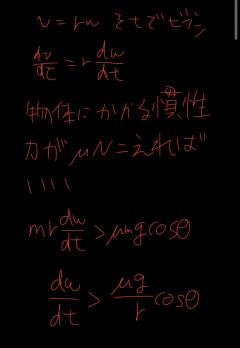 v = rω そもでビブン
dv/dt = r dω/dt
物体にかかる慣性
力がμNこえれば
いい
mr dω/dt > μmg cosθ
dω/dt > μg/r cosθ